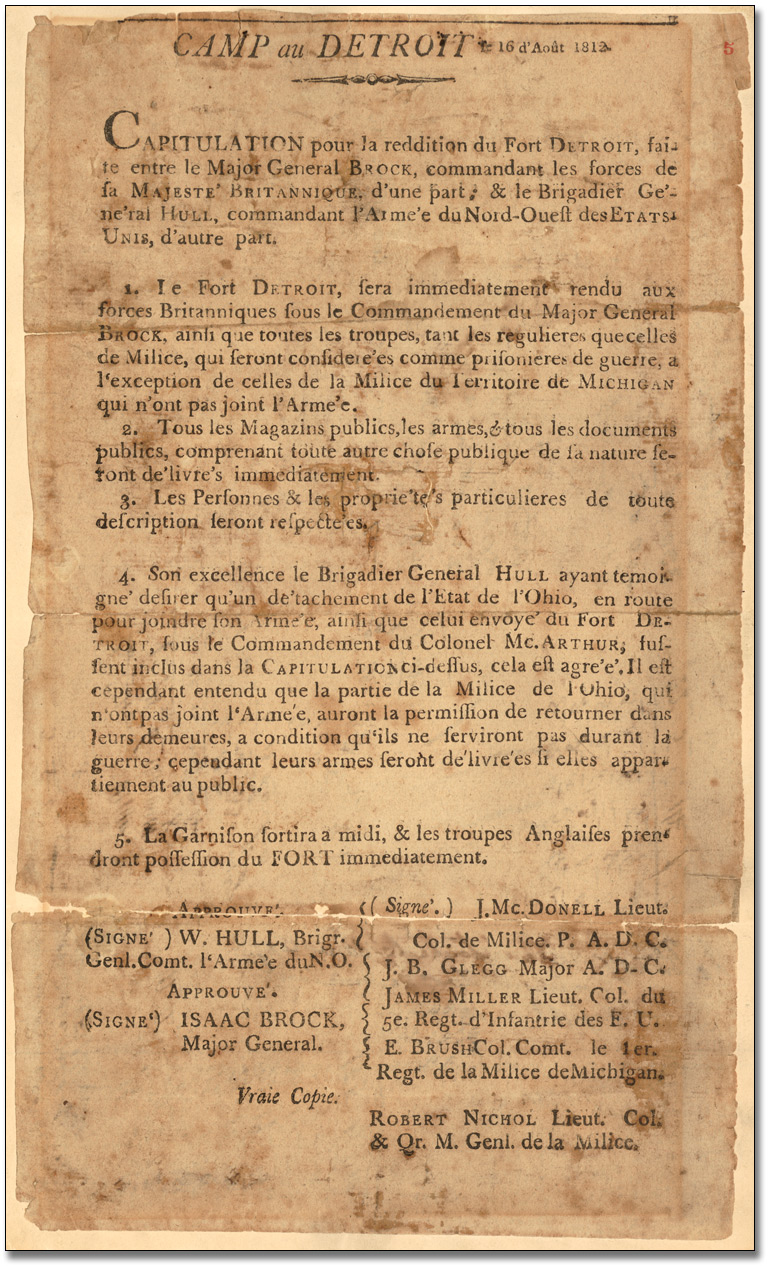 CAMP au DETROIT le 16 d'Août 1812.
5
CAPITULATION pour la reddition du Fort DETROIT, fai-
te entre le Major General BROCK, commandant les forces de
ſa MAJESTE' BRITANNIQUE, d'une part; & le Brigadier Ge'-
ne'ral HULL, commandant l'Arme'e du Nord-Oueſt des ETATS-
UNIS, d'autre part.
1. Le Fort DETROIT, ſera immediatement rendu aux
forces Britanniques ſous le Commandement du Major General
BROCK, ainſi que toutes les troupes, tant les regulieres que celles
de Milice, qui ſeront conſidere'es comme priſonieres de guerre, a
l'exception de celles de la Milice du Territoire de MICHIGAN
qui n'ont pas joint l'Arme'e.
2. Tous les Magazins publics, les armes, & tous les documents
publics, comprenant toute autre choſe publique de ſa nature ſe-
ront de'livre's immediatement.
3. Les Perſonnes & les proprie'te's particulieres de toute
deſcription ſeront reſpecte'es.
4. Son excellence le Brigadier General HULL ayant temoi-
gne' deſirer qu'un de'tachement de l'Etat de l'Ohio, en route
pour joindre ſon Arme'e, ainſi que celui envoye' du Fort DE-
TROIT, ſous le Commandement du Colonel Mc. ARTHUR, fuſ-
ſent inclus dans la CAPITULATION ci-deſſus, cela eſt agre'e'. Il eſt
cependant entendu que la partie de la Milice de l'Ohio, qui
n'ont pas joint l'Arme'e, auront la permiſſion de retourner dans
leurs demeures, a condition qu'ils ne ſerviront pas durant la
guerre; cependant leurs armes ſeront de'livre'es ſi elles appar-
tiennent au public.
5. La Garniſon ſortira a midi, & les troupes Anglaiſes pren-
dront poſſeſſion du FORT immediatement.
APPROUVE'.
(SIGNE') W. HULL, Brigr.
Genl. Comt. l'Arme'e du N.O.
APPROUVE'.
(SIGNE') ISAAC BROCK,
Major General.
(Signe'.) J. Mc. DONELL Lieut.
Col. de Milice. P. A. D. C.
J. B. GLEGG Major A. D. C.
JAMES MILLER Lieut. Col. du
5e. Regt. d'Infantrie des E. U.
E. BRUSH Col. Comt. le 1er.
Regt. de la Milice de Michigan.
Vraie Copie.
ROBERT NICHOL Lieut. Col.
& Qr. M. Genl. de la Milice.